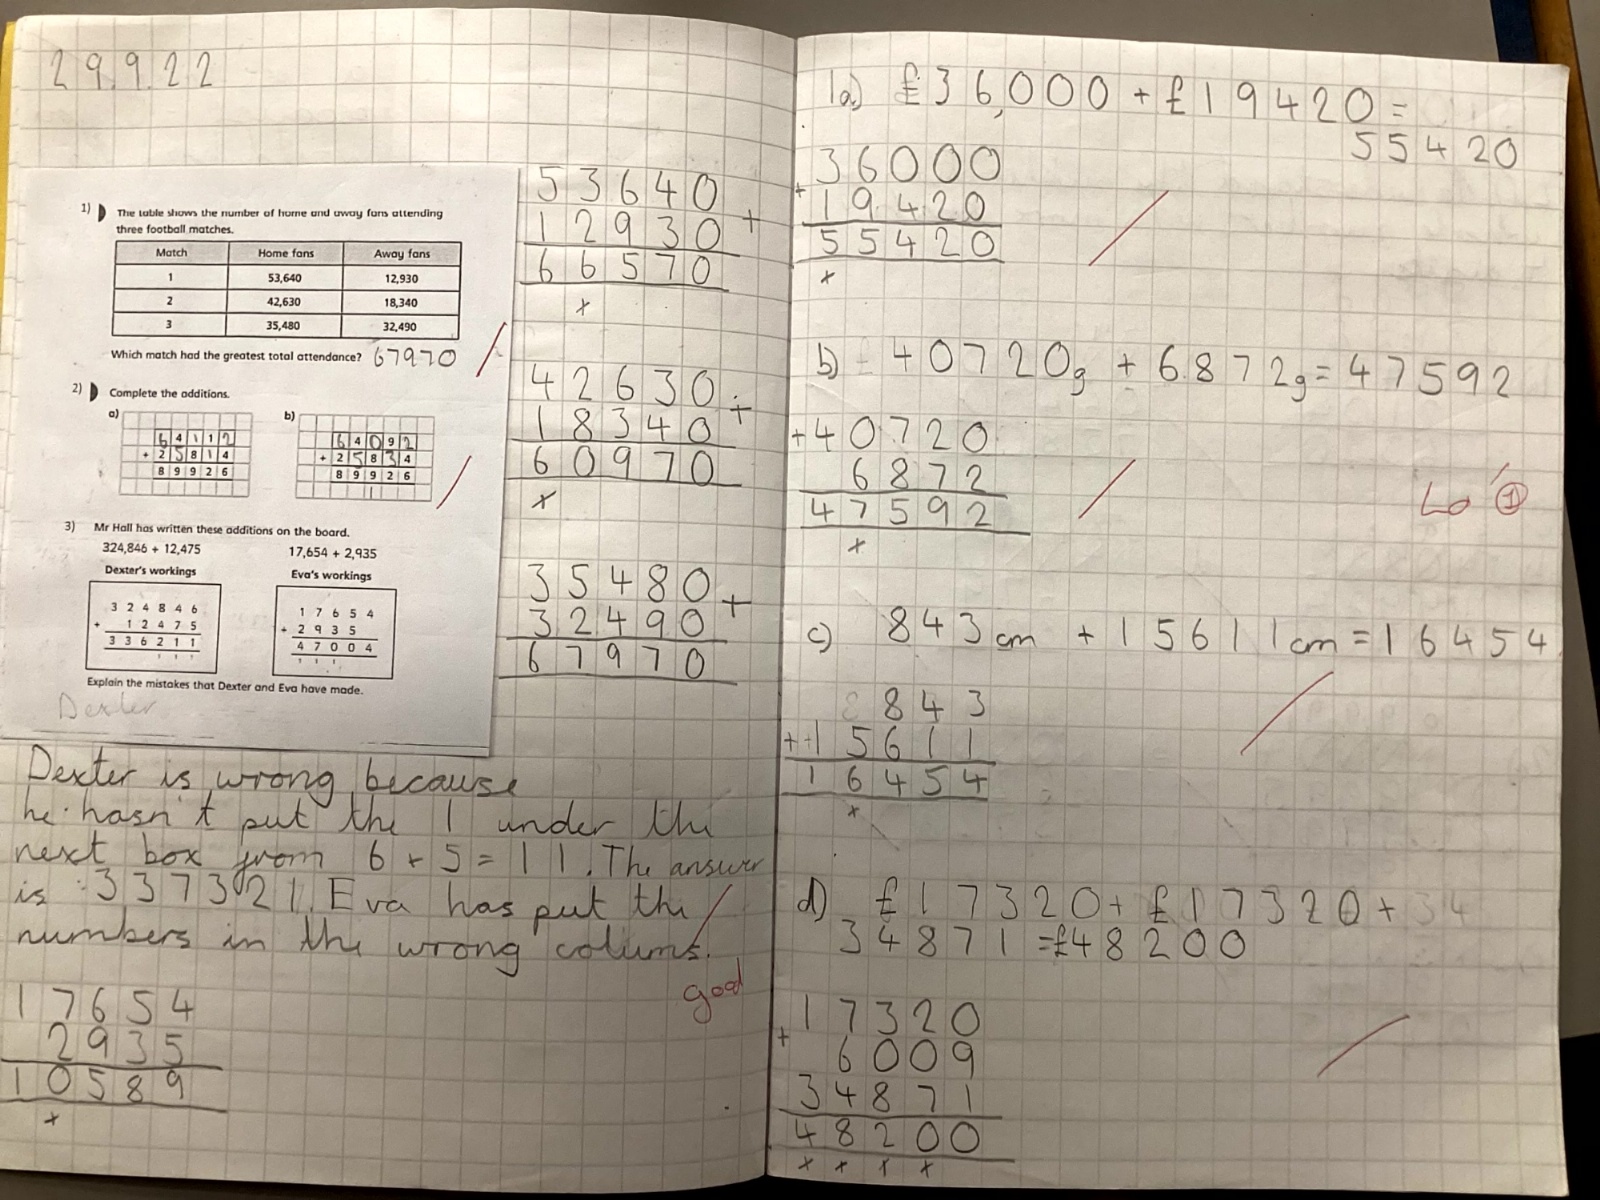 29.9.22
1) The table shows the number of home and away fans attending
three football matches.
Match Home fans Away fans
1 53,640 12,930
2 42,630 18,340
3 35,480 32,490
Which match had the greatest total attendance? 67970
2) Complete the additions.
a) b)
6 4 1 1 2
+ 2 5 8 1 4
8 9 9 2 6
6 4 0 9 2
+ 2 5 8 3 4
8 9 9 2 6
1
3) Mr Hall has written these additions on the board.
324,846 + 12,475 17,654 + 2,935
Dexter's workings Eva's workings
3 2 4 8 4 6
+ 1 2 4 7 5
3 3 6 2 1 1
1 1 1
1 7 6 5 4
+ 2 9 3 5
4 7 0 0 4
1 1 1
Explain the mistakes that Dexter and Eva have made.
Dexter
53640
12930 +
66570
x
42630
18340 +
60970
x
35480
32490 +
67970
Dexter is wrong because
he hasn't put the 1 under the
next box from 6 + 5 = 11. The answer
is 337321. Eva has put the
numbers in the wrong colums.
good
17654
2935
10589
x
1a) £36,000 + £19420 =
55420
36000
+ 19420
55420
x
b) 40720g + 6872g = 47592
+ 40720
6872
47592
x
Lo 1
c) 843cm + 15611cm = 16454
843
+ 15611
16454
x
d) £17320 + £17320 + 34
34871 = £48200
17320
+ 6009
34871
48200
x x x x